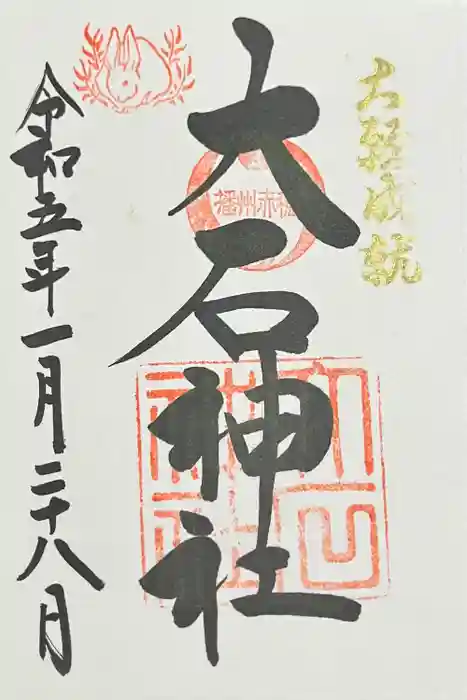 大願成就
播州赤穂
大石神社
大石神社
令和五年一月二十八日